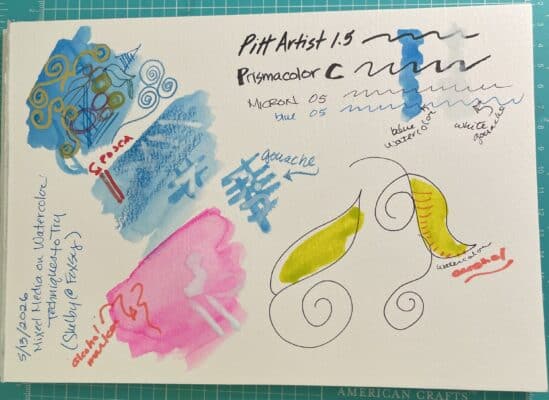 Pitt Artist 1.5
Prismacolor C
MICRON 05
blue 05
blue
watercolor
white
gouache
& POSCA
gouache
watercolor
alcohol
alcohol
marker
5/13/2026
Mixed Media on Watercolor
Techniques to Try
AMERICAN CRAFTS